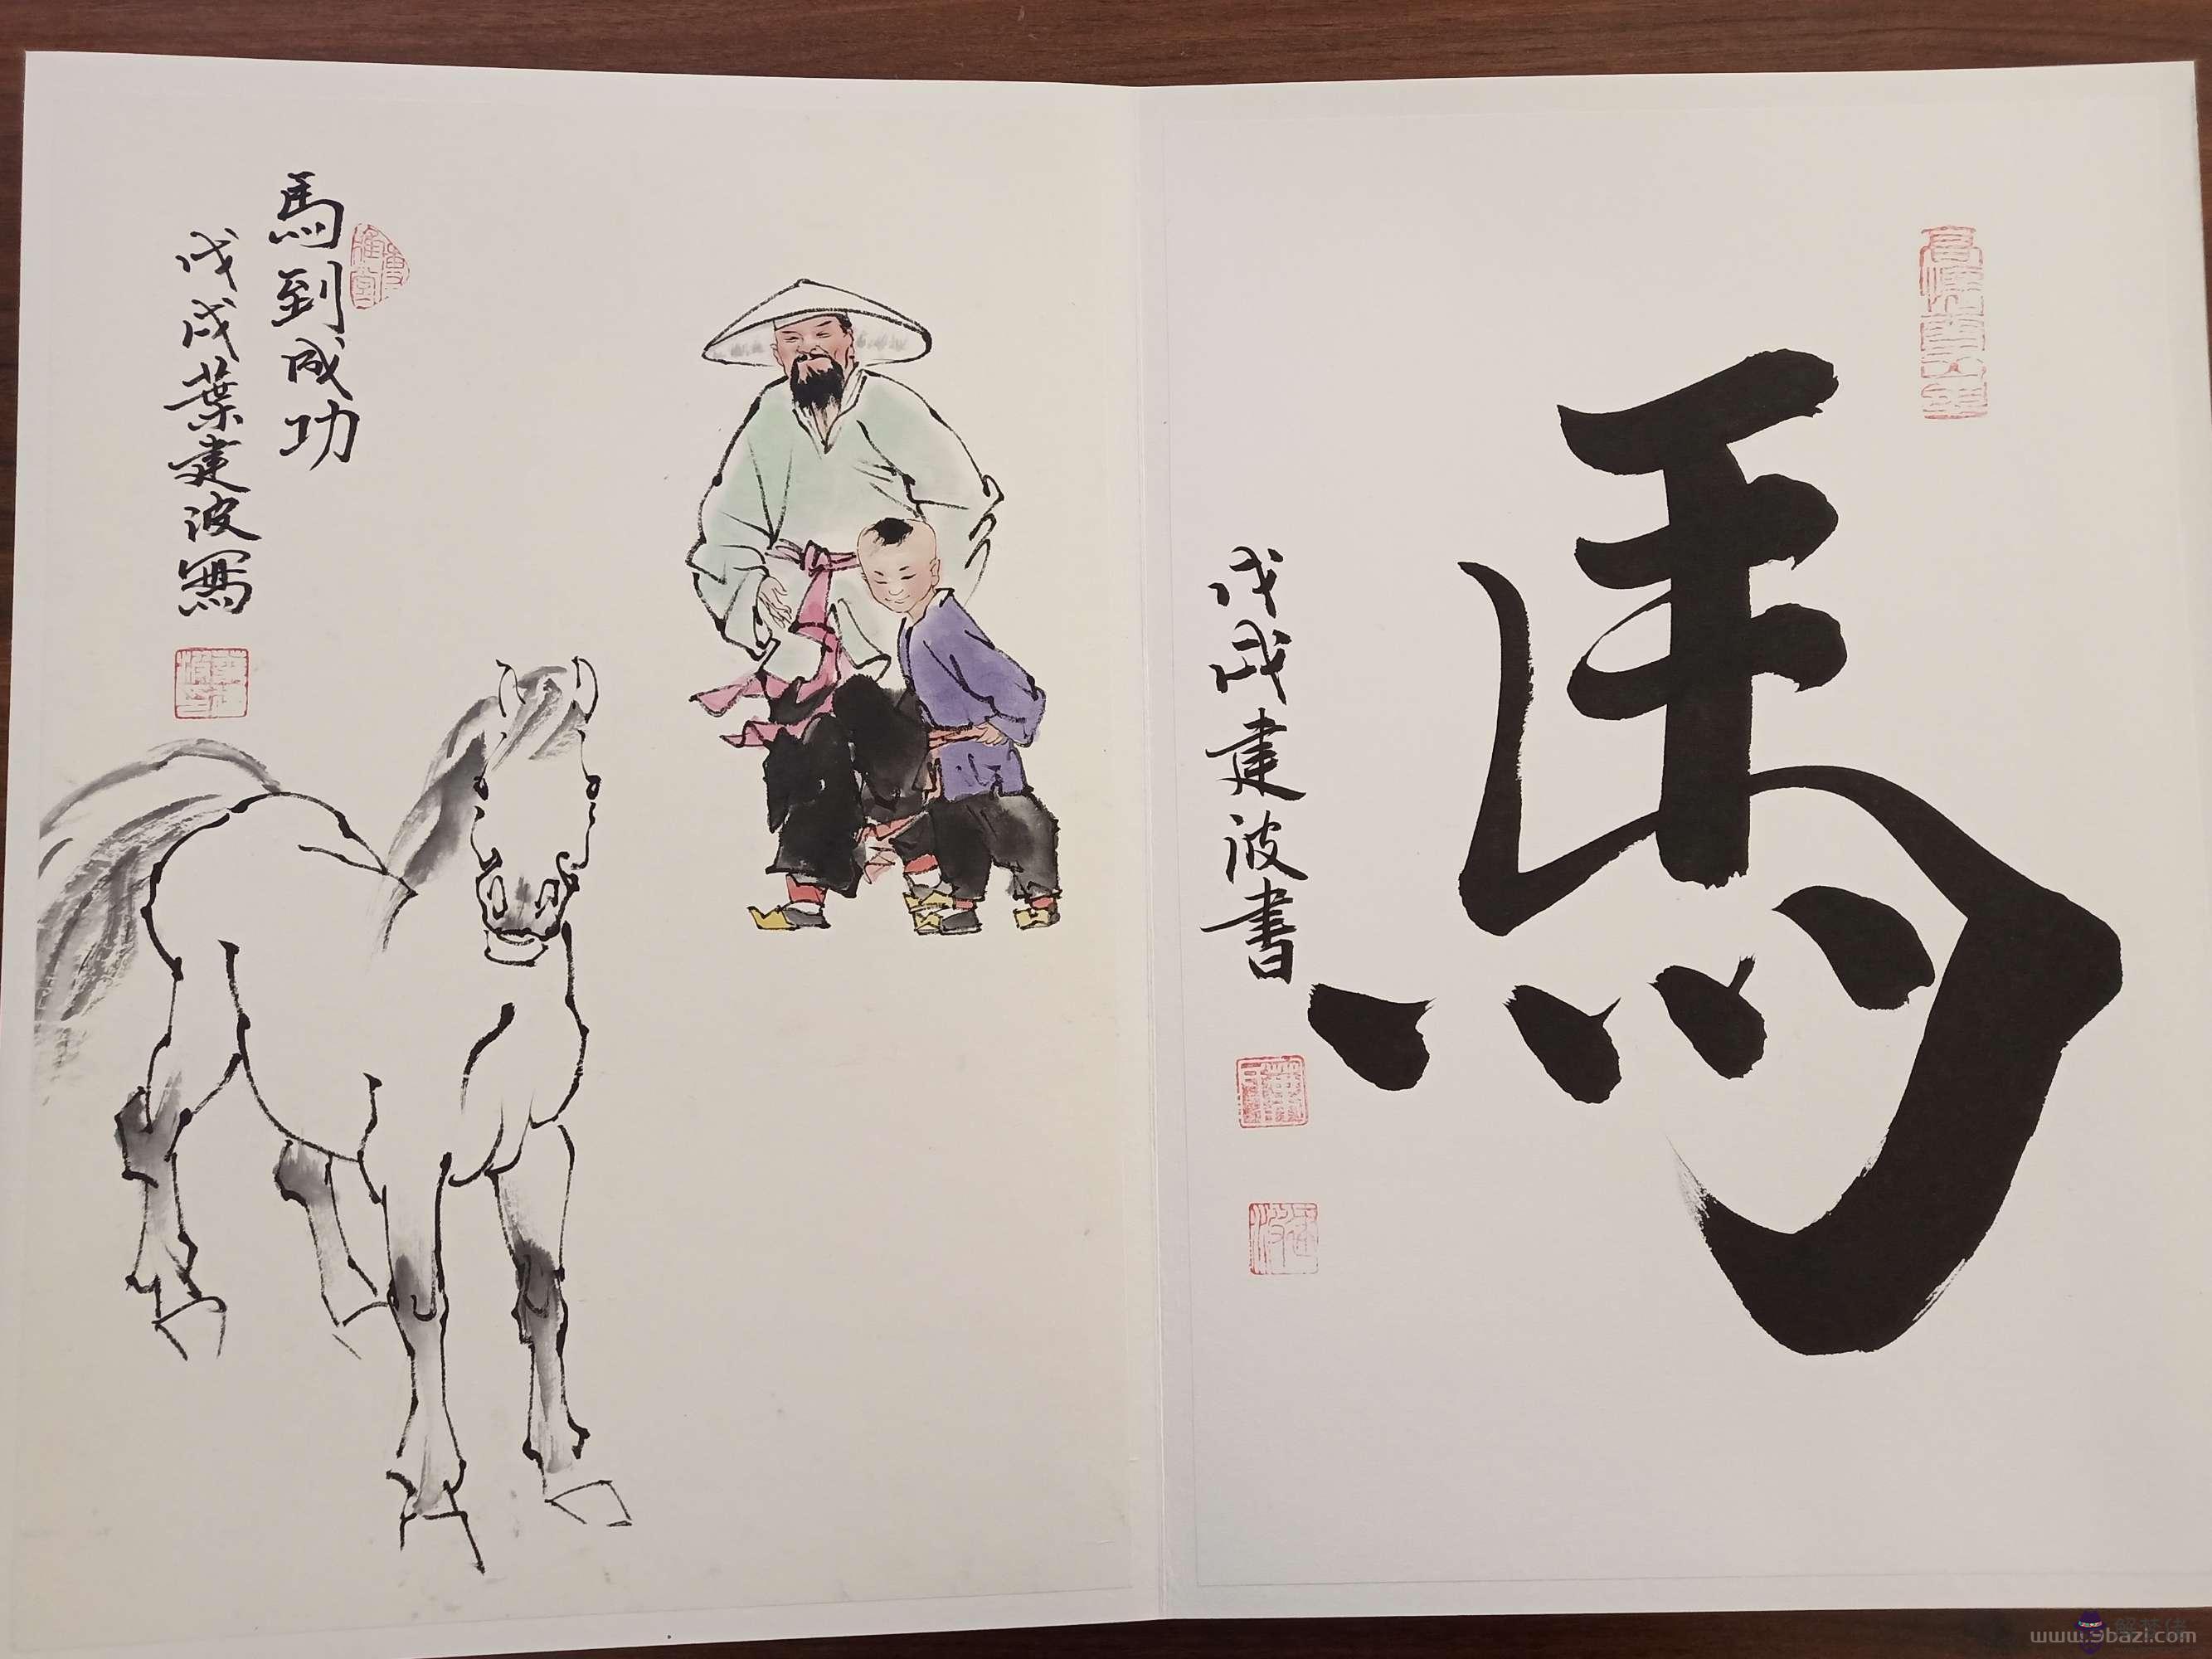 馬
戊戌建波書
馬到成功
戊戌葉建波寫
www.9bazi.com